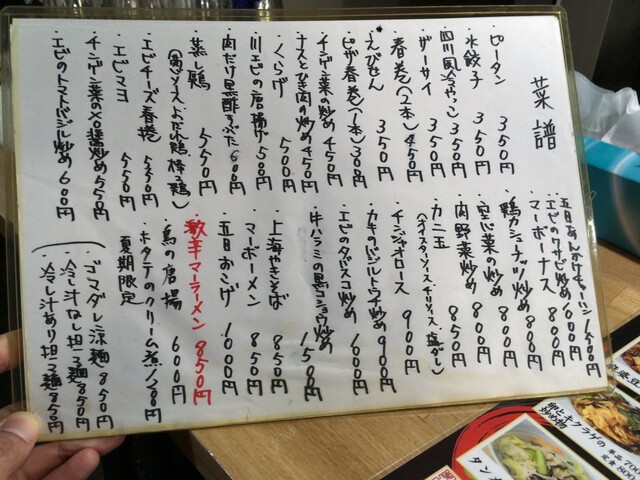 菜譜
・ピータン 350円
・水餃子 350円
・四川風冷やっこ 350円
・ザーサイ 350円
・春巻(2本) 450円
・えびせん 350円
・ピザ春巻(1本) 300円
・チンゲン菜の炒め 450円
・ナスとひき肉の炒め 450円
・くらげ 500円
・川エビの唐揚げ 500円
・肉だけ黒酢すぶた 600円
・蒸し鶏 550円
・エビチーズ春捲 550円
・エビマヨ 550円
・チンゲン菜のXO醤炒め 550円
・エビのトマトバジル炒め 600円
五目あんかけチャーハン
・エビのワサビ炒め 800円
・マーボーナス 800円
・鴨カシューナッツ炒め 800円
・空心菜の炒め 850円
・肉野菜炒め 850円
・カニ玉 850円
(オイスターソース、チリソース、塩がし)
・チンジャオロース 900円
・カキのバジルトウチ炒め 900円
・エビのタバスコ炒め 1000円
・牛ハラミの黒コショウ炒め 1150円
・上海やきそば 850円
・マーボーメン 850円
・五目おこげ 1000円
・激辛マーラーメン 850円
・鳥の唐揚 600円
・ホタテのクリーム煮 1200円
夏期限定
・ゴマダレ涼麺 850円
・冷し汁なし担々麺 850円
・冷し汁あり担々麺 850円
卵とキクラゲの
炒め物
単品 700
定食 800
タン